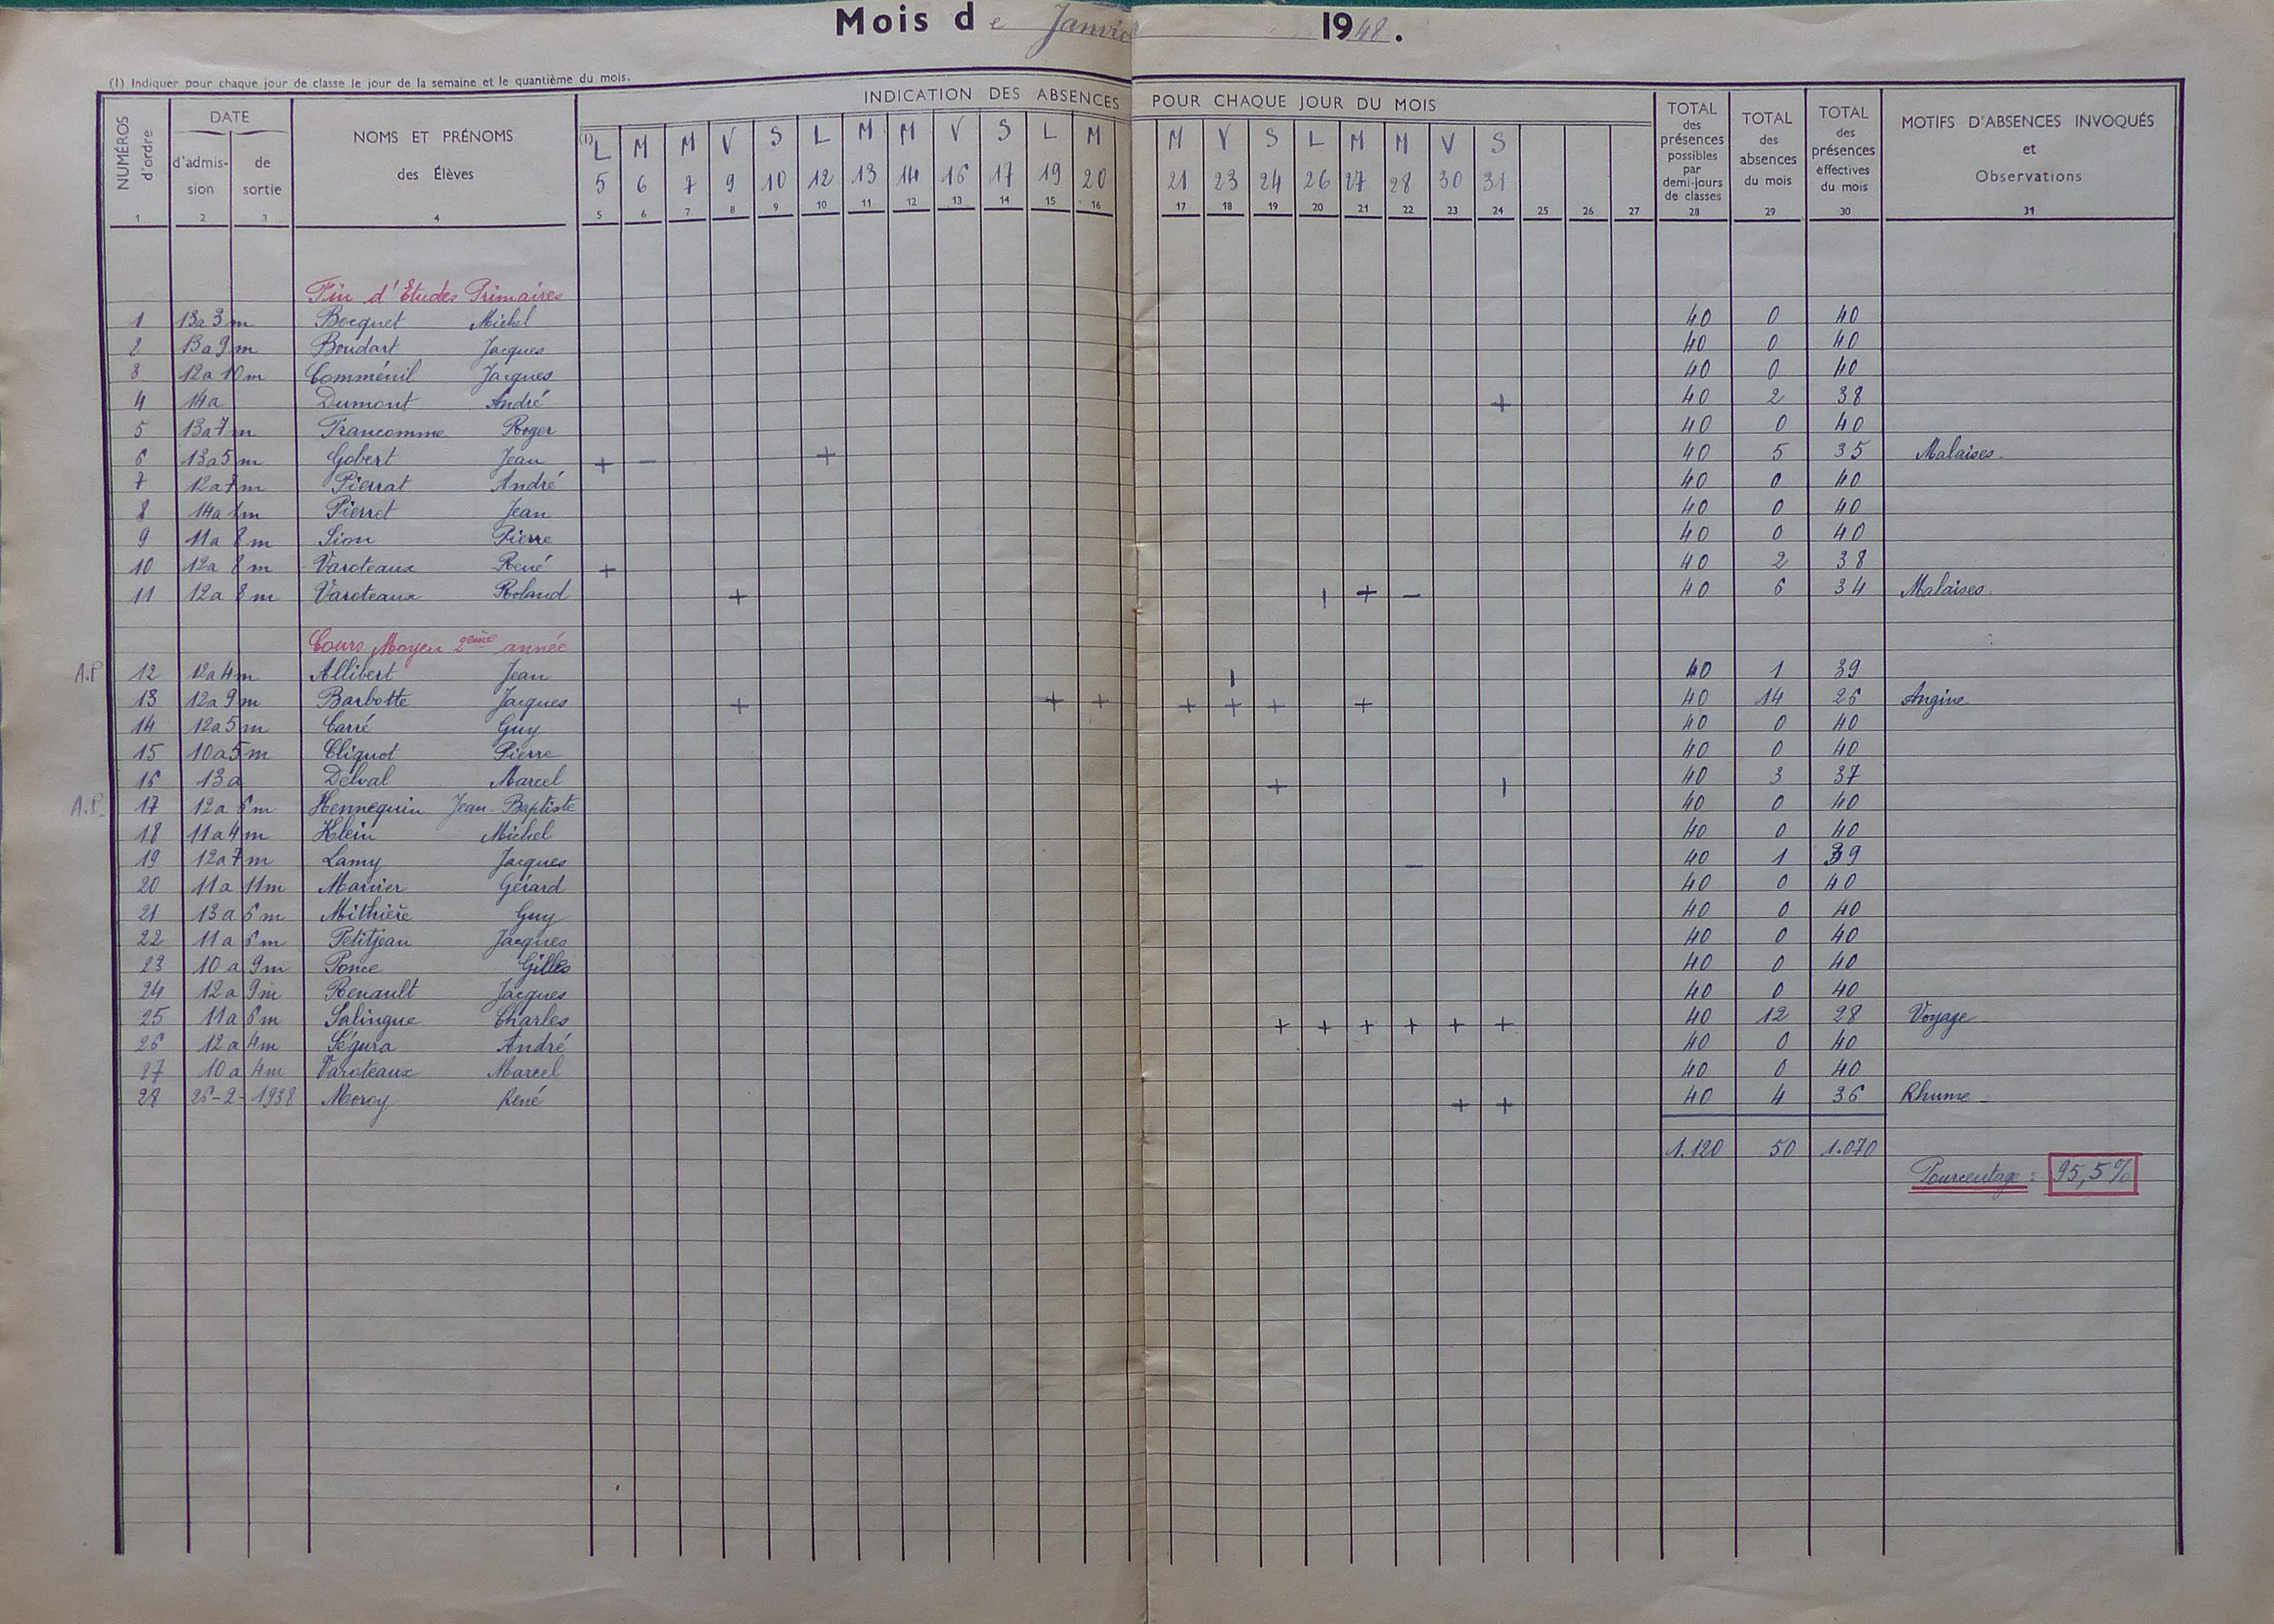 Mois de Janvier 1948.
(1) Indiquer pour chaque jour de classe le jour de la semaine et le quantième du mois.
INDICATION DES ABSENCES POUR CHAQUE JOUR DU MOIS
NUMÉROS d'ordre DATE d'admission de sortie NOMS ET PRÉNOMS des Élèves TOTAL des présences possibles par demi-jours de classes TOTAL des absences du mois TOTAL des présences effectives du mois MOTIFS D'ABSENCES INVOQUÉS et Observations
(1) L M M V S L M M V S L M M V S L M M V S
5 6 7 9 10 12 13 14 16 17 19 20 21 23 24 26 27 28 30 31
1 2 3 4 5 6 7 8 9 10 11 12 13 14 15 16 17 18 19 20 21 22 23 24 25 26 27 28 29 30 31
Fin d'Études Primaires
1 13a 3m Bocquet Michel 40 0 40
2 13a 9m Boudart Jacques 40 0 40
3 12a 10m Comménil Jacques 40 0 40
4 14a Dumont André + 40 2 38
5 13a 7m Francomme Roger 40 0 40
6 13a 5m Gobert Jean + - + 40 5 35 Malaises
7 12a 7m Pierrat André 40 0 40
8 14a 1m Pierret Jean 40 0 40
9 11a 8m Sion Pierre 40 0 40
10 12a 8m Varoteaux René + 40 2 38
11 12a 8m Varoteaux Roland + | + - 40 6 34 Malaises
Cours Moyen 2ème année
A.P. 12 12a 4m Allibert Jean | 40 1 39
13 12a 9m Barbotte Jacques + + + + + + + 40 14 26 Angine
14 12a 5m Carré Guy 40 0 40
15 10a 5m Cliquot Pierre 40 0 40
16 13a Delval Marcel + | 40 3 37
A.P. 17 12a 6m Hennequin Jean-Baptiste 40 0 40
18 11a 4m Klein Michel 40 0 40
19 12a 7m Lamy Jacques - 40 1 39
20 11a 11m Marvier Gérard 40 0 40
21 13a 6m Mithière Guy 40 0 40
22 11a 6m Petitjean Jacques 40 0 40
23 10a 9m Ponce Gilles 40 0 40
24 12a 9m Renault Jacques 40 0 40
25 11a 6m Salingue Charles + + + + + + 40 12 28 Voyage
26 12a 4m Ségura André 40 0 40
27 10a 4m Varoteaux Marcel 40 0 40
28 26-2-1938 Moroy René + + 40 4 36 Rhume
1.120 50 1.070
Pourcentage : 95,5%